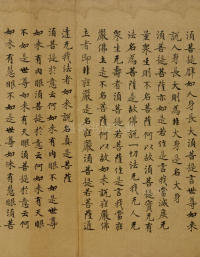 須菩提譬如人身長大須菩提言世尊如來
說人身長大則為非大身是名大身
須菩提菩薩亦如是若作是言我當滅度无
量眾生則不名菩薩何以故須菩提實无有
法名為菩薩是故佛說一切法无我无人无
眾生无壽者須菩提若菩薩作是言我當莊
嚴佛土是不名菩薩何以故如來說莊嚴佛
土者即非莊嚴是名莊嚴須菩提若菩薩通
達无我法者如來說名真是菩薩
須菩提於意云何如來有肉眼不如是世尊
如來有肉眼須菩提於意云何如來有天眼
不如是世尊如來有天眼須菩提於意云何
如來有慧眼不如是世尊如來有慧眼須菩